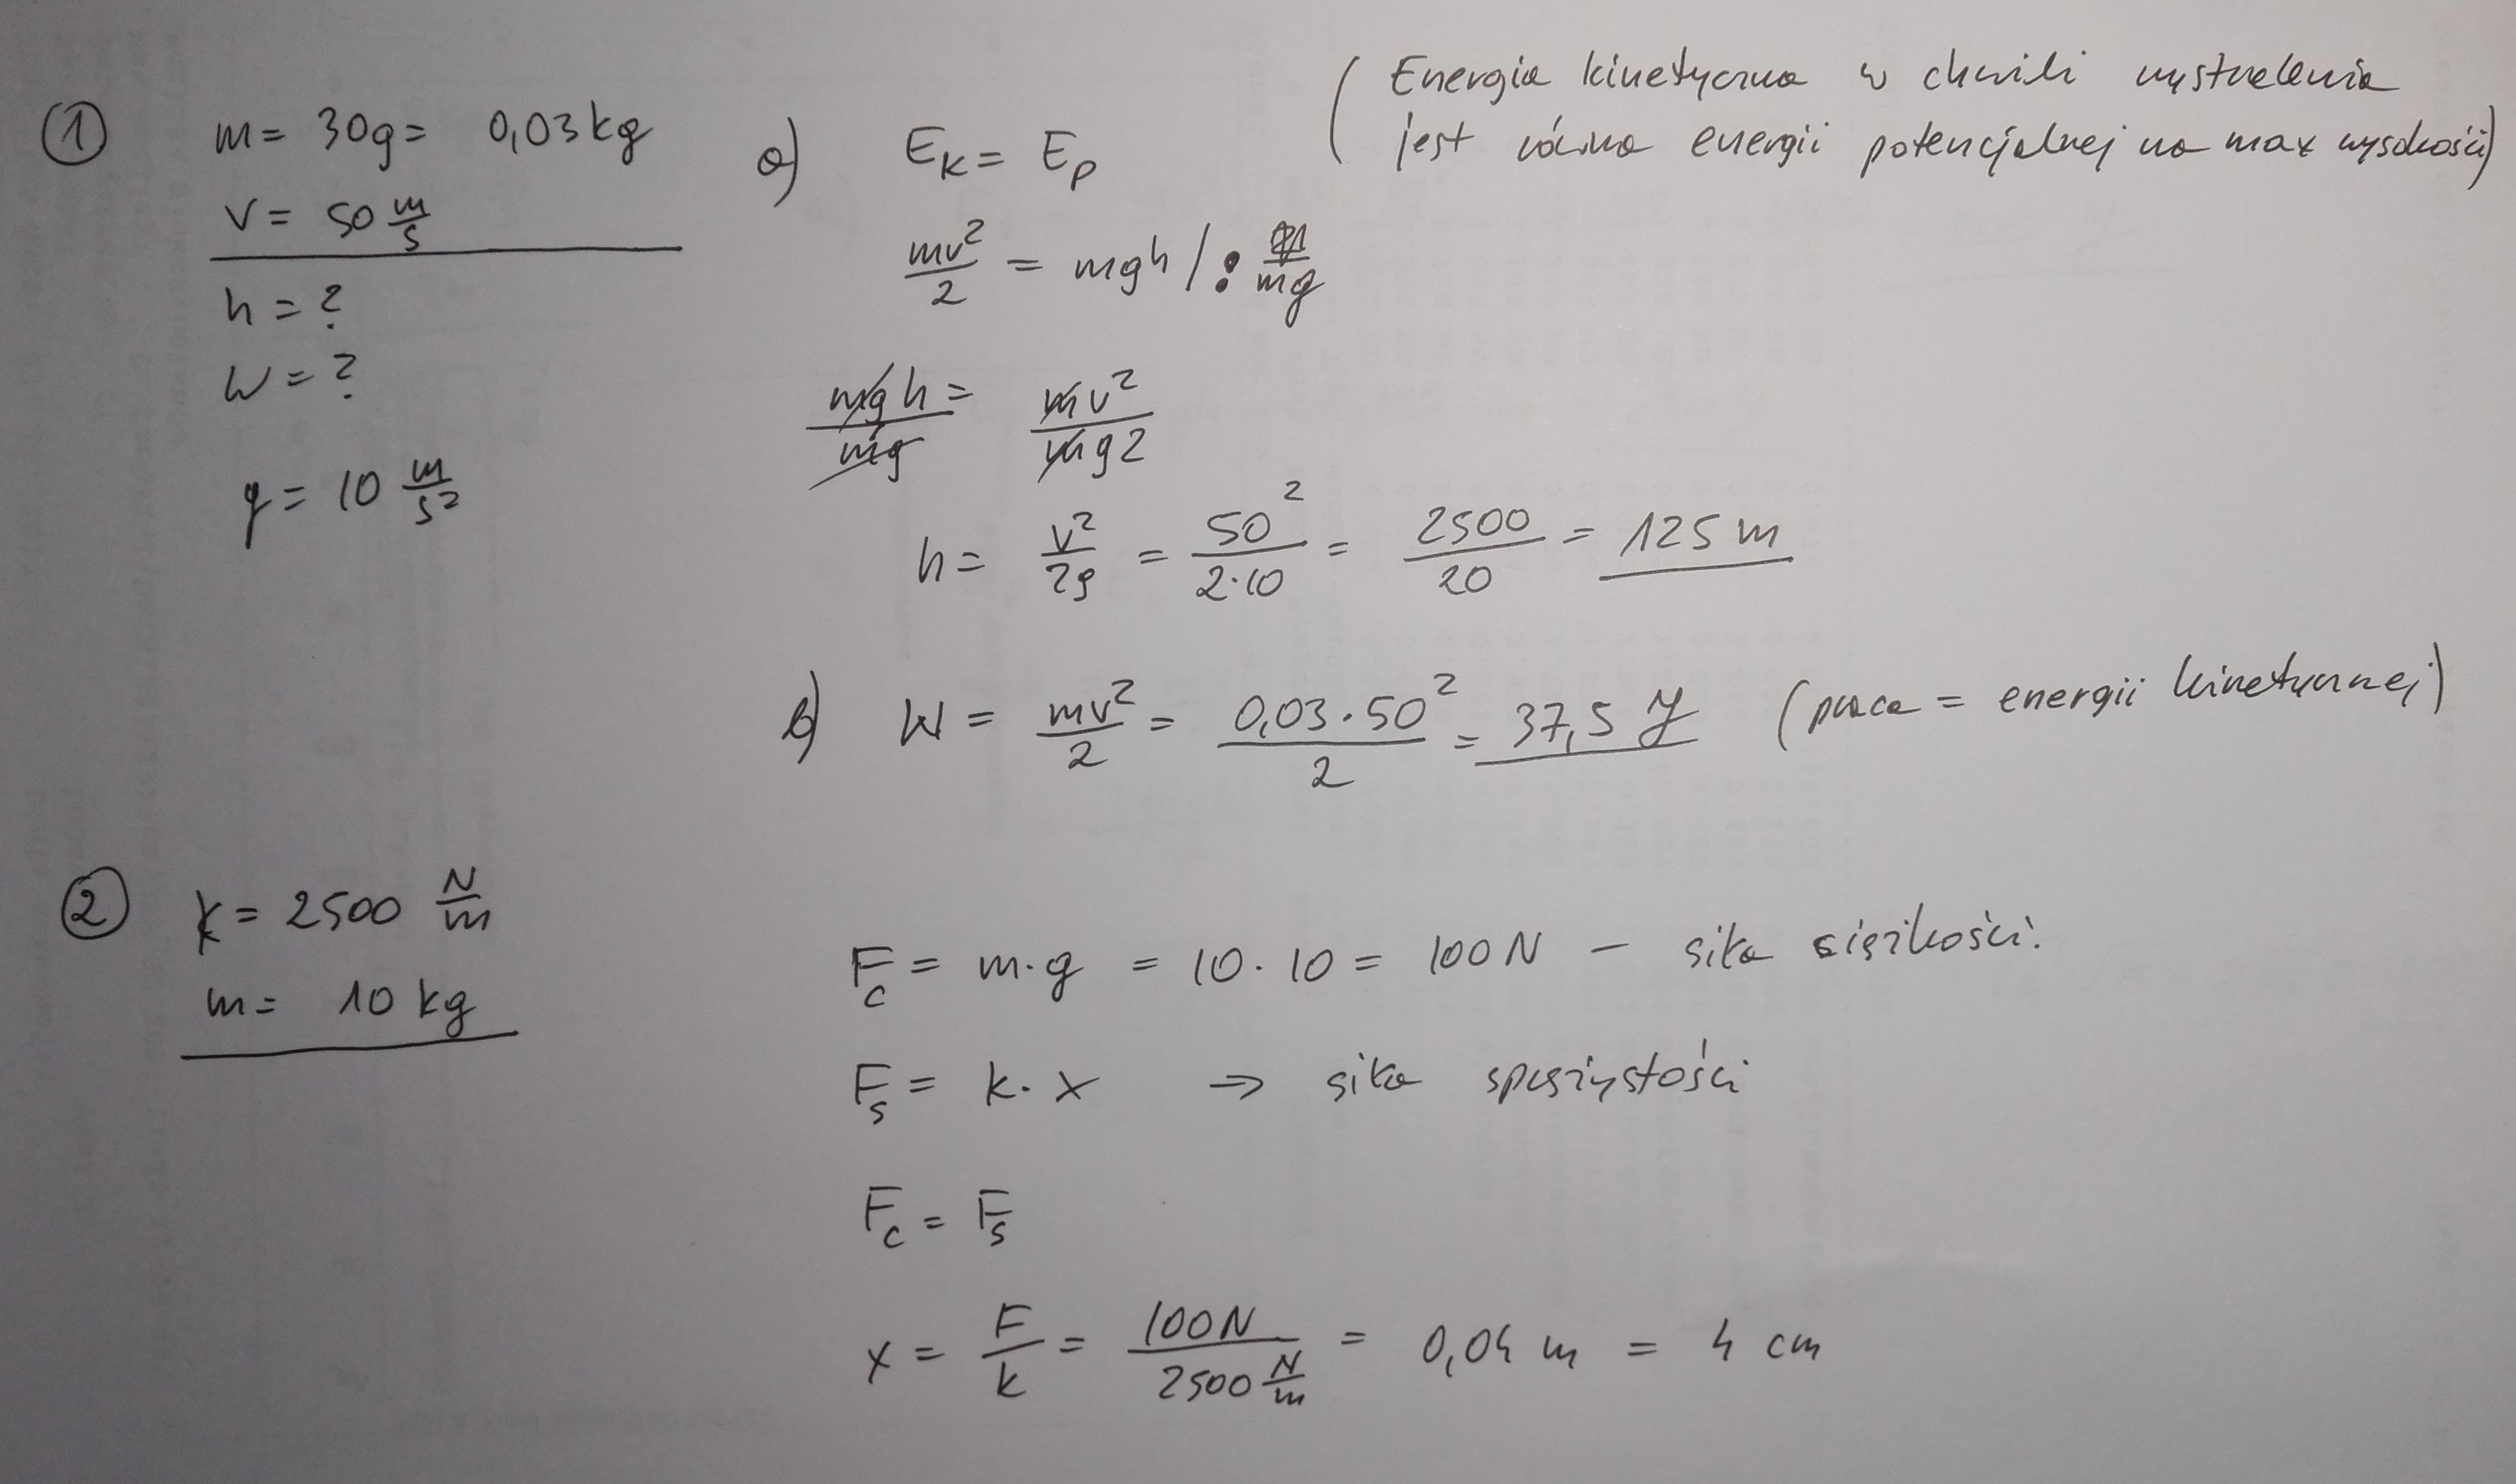 ① m = 30g = 0,03 kg
v = 50 m/s
h = ?
W = ?
g = 10 m/s²
a) Ek = Ep
( Energia kinetyczna w chwili wystrzelenia
jest równa energii potencjalnej na max wysokości)
mv²/2 = mgh / : mg
mgh/mg = mv²/mg2
h = v²/2g = 50²/2·10 = 2500/20 = 125 m
b) W = mv²/2 = 0,03·50²/2 = 37,5 J (praca = energii kinetycznej)
② k = 2500 N/m
m = 10 kg
Fc = m·g = 10·10 = 100 N – siła ciężkości.
Fs = k·x ⇒ siła sprężystości
Fc = Fs
x = F/k = 100N/2500 N/m = 0,04 m = 4 cm